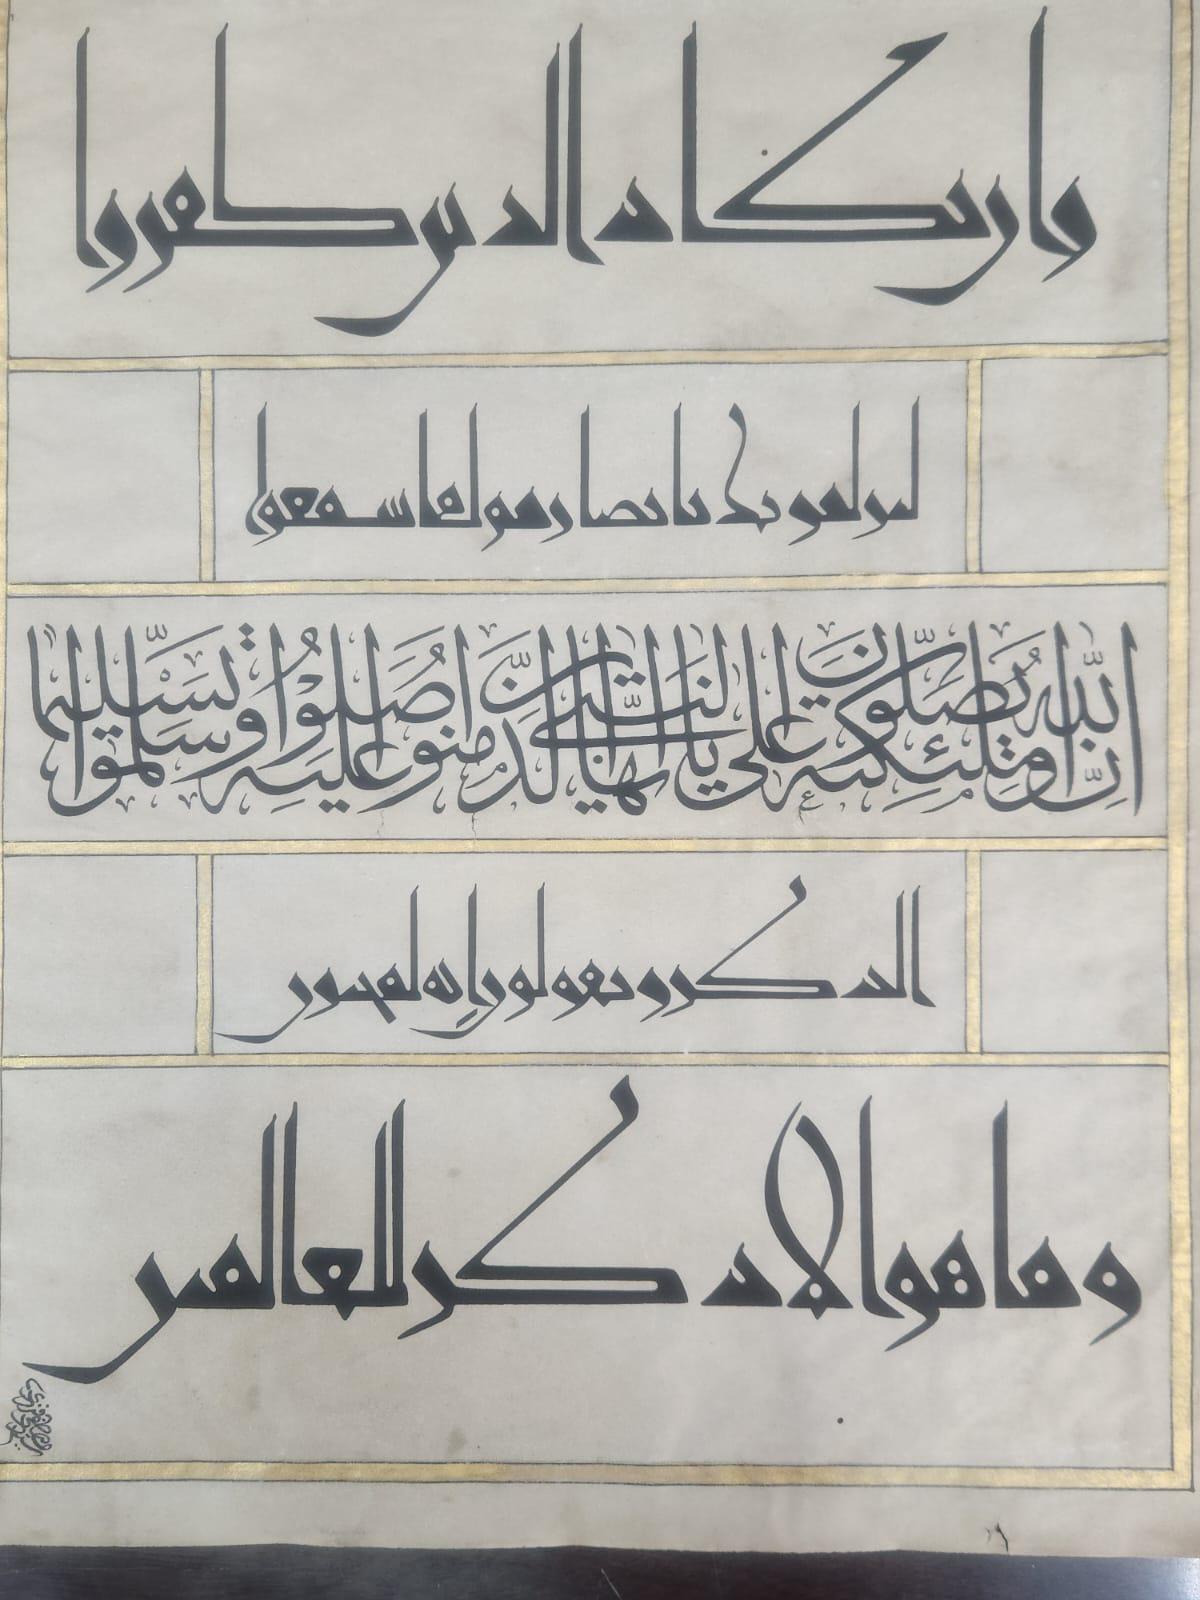 وان يكاد الذين كفروا
ليزلقونك بابصارهم لما سمعوا
اِنَّ اللّٰه وملئكته يُصَلّونَ على النبي يا ايها الَّذين امنوا صَلُّوا عليه وسلموا تسليما
الذكر ويقولون انه لمجنون
وما هو الا ذكر للعالمين